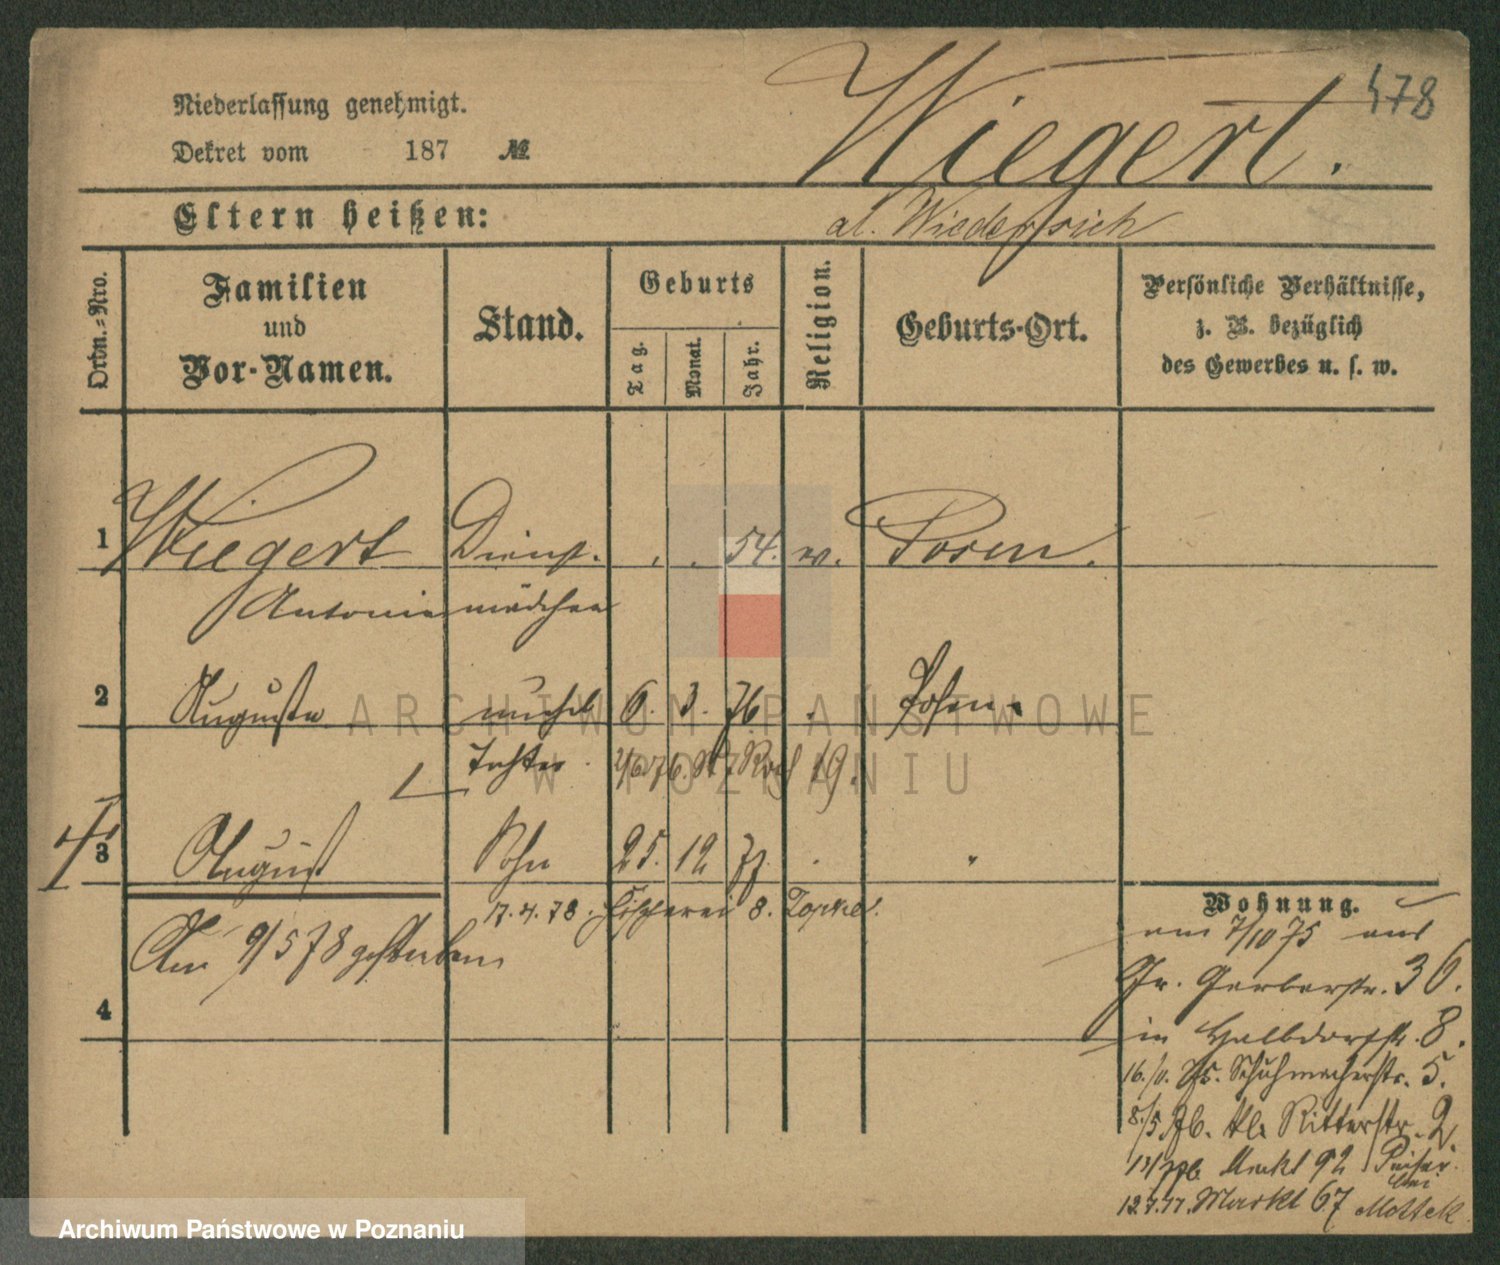 Niederlassung genehmigt.
478
Dekret vom 187 №
Wiegert.
Eltern heißen:
al.
Ordn.=Nro.
Familien
und
Vor-Namen.
Stand.
Geburts
Tag.
Monat.
Jahr.
Religion.
Geburts-Ort.
Persönliche Verhältnisse,
z. B. bezüglich
des Gewerbes u. s. w.
1 Wiegert Dienst. . . 54. Posen.
Antonie mädchen
2 Auguste unehel 6. 3. 76 . Posen.
Tochter 19.
3 August Sohn 25. 12 77. . "
17.4.78. Fischerei 8.
Am 9/5 78 gestorben
4
Wohnung.
am 7/10 75 aus
Gr. Gerberstr. 36.
in Halbdorfstr. 8.
Schuhmacherstr. 5.
8/5 76. Ritterstr. 2.
Markt 92
12.7.77. Markt 67 Mottek
ARCHIWUM PAŃSTWOWE
W POZNANIU
Archiwum Państwowe w Poznaniu